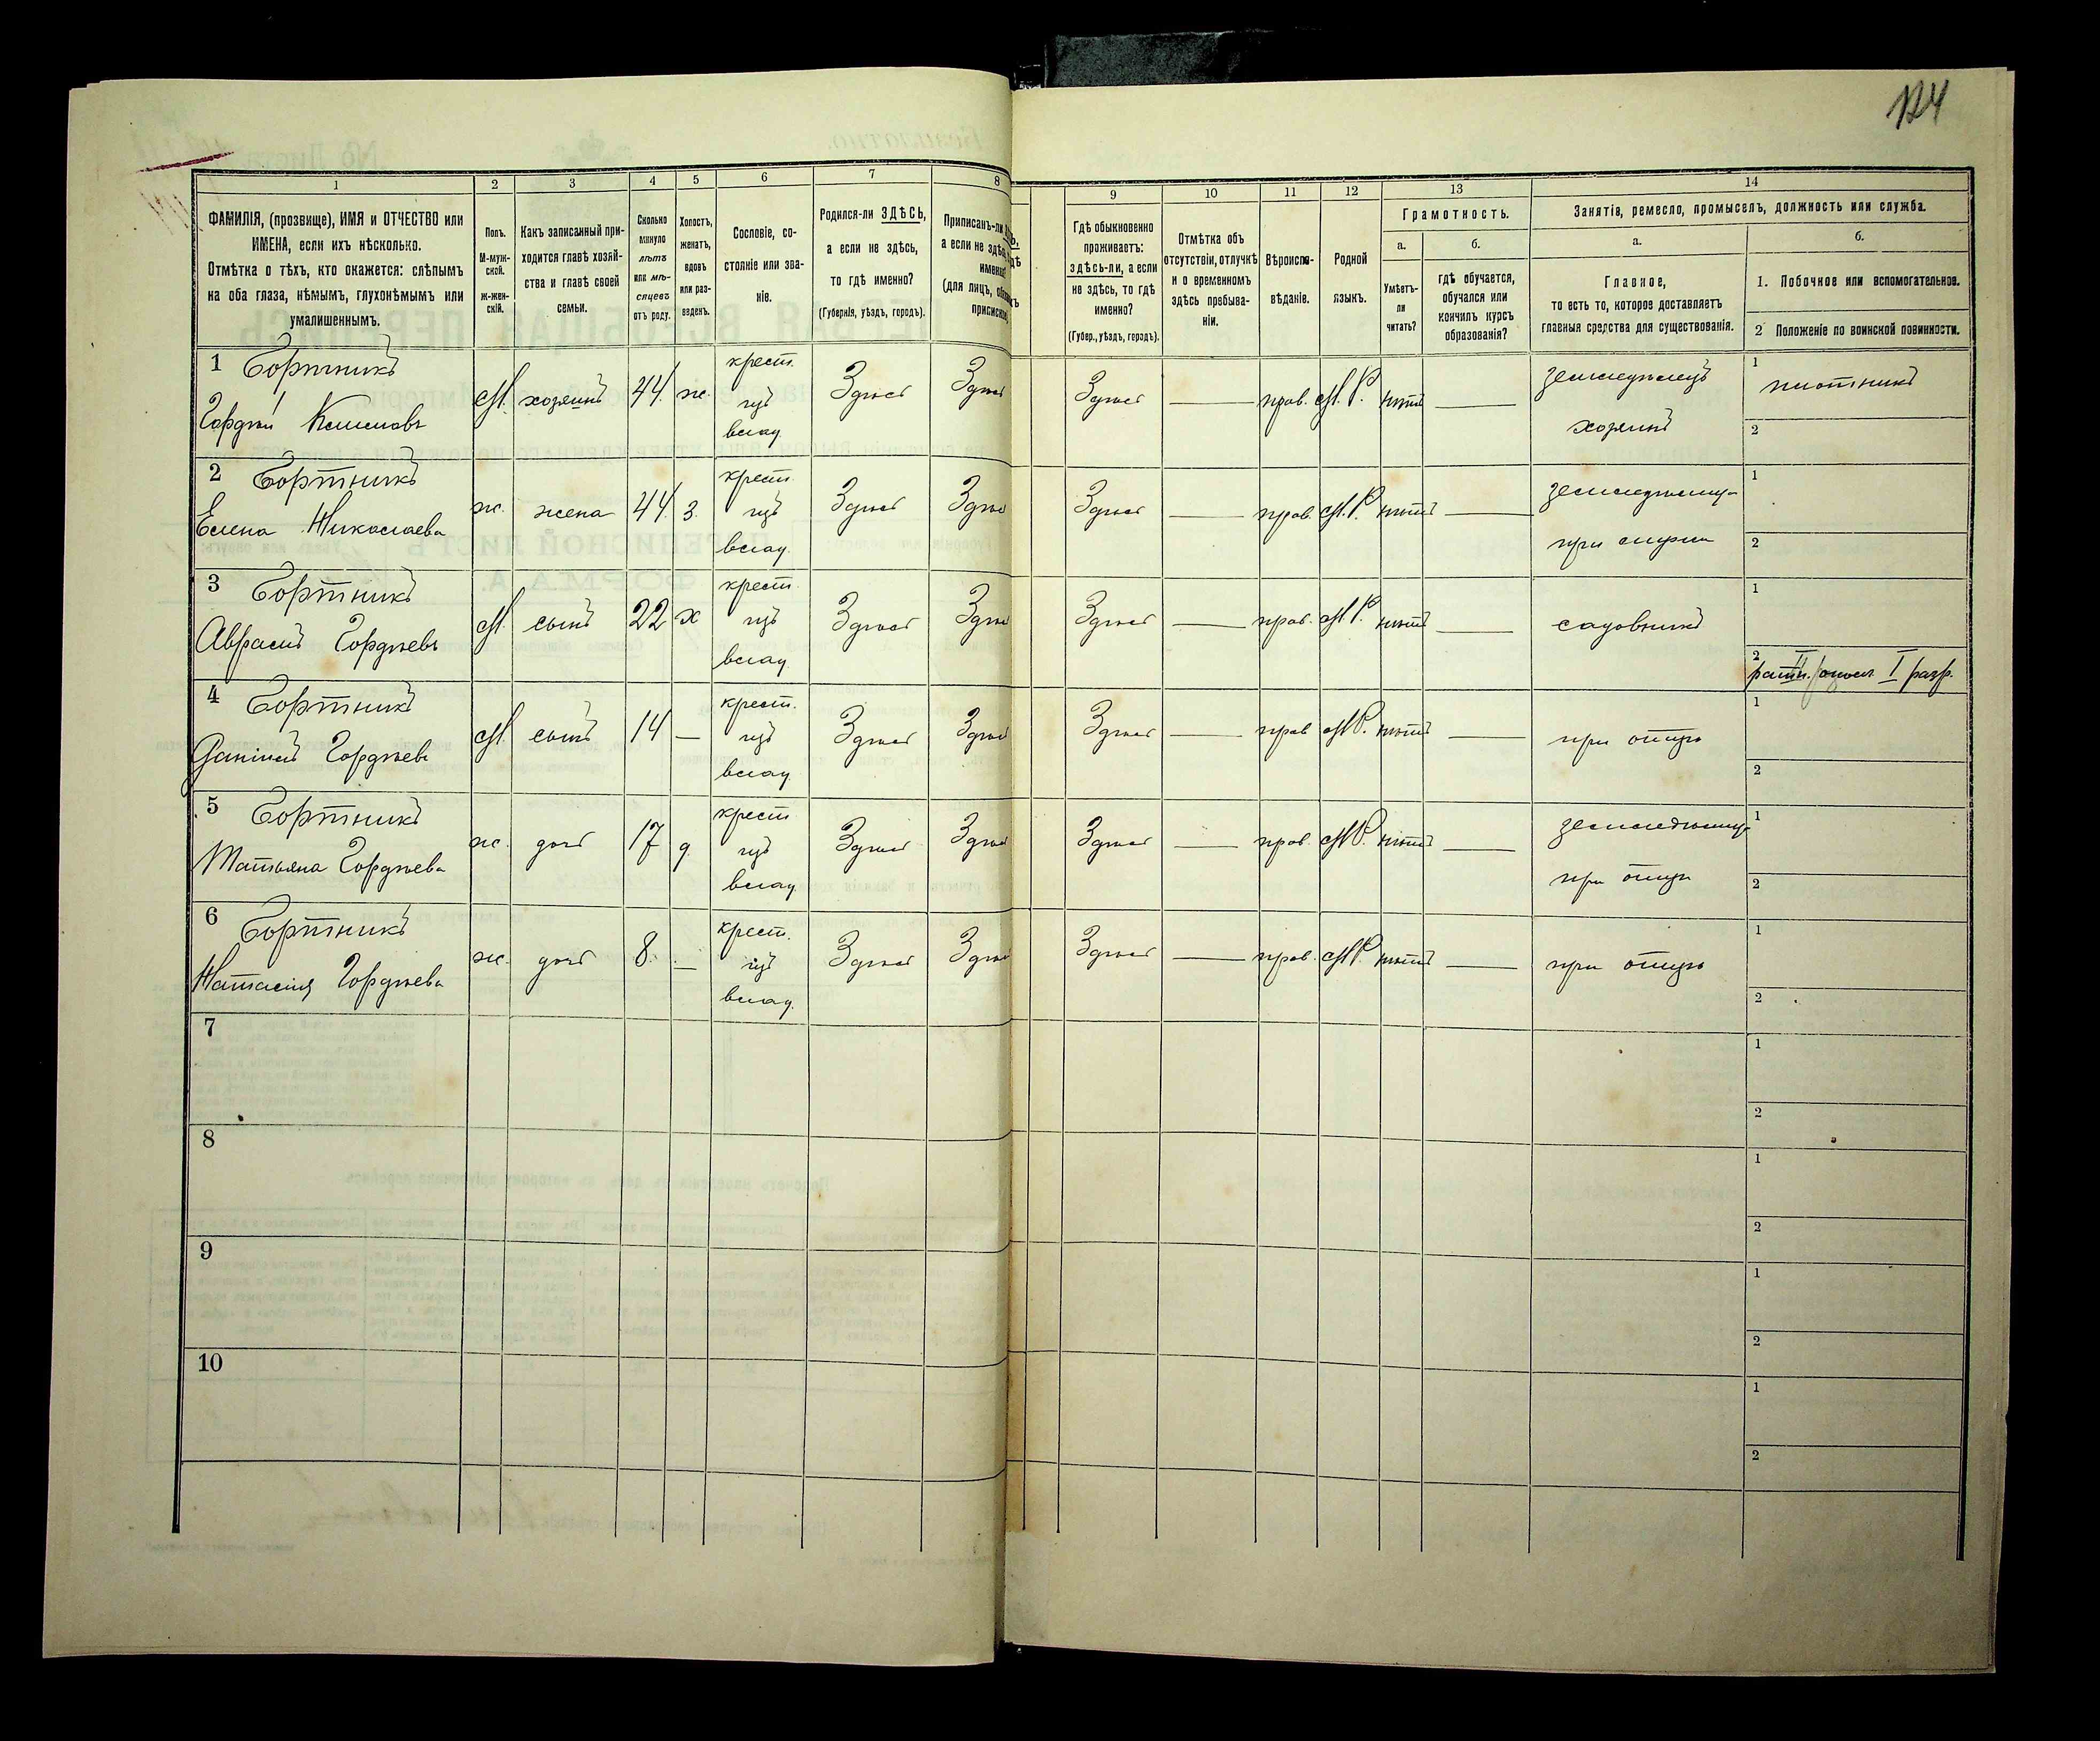 124
1
2
3
4
5
6
7
8
9
10
11
12
13
14
ФАМИЛІЯ, (прозвище), ИМЯ и ОТЧЕСТВО или
ИМЕНА, если ихъ нѣсколько.
Отмѣтка о тѣхъ, кто окажется: слѣпымъ
на оба глаза, нѣмымъ, глухонѣмымъ или
умалишеннымъ.
Полъ.
М-муж-
ской.
Ж-жен-
скій.
Какъ записанный при-
ходится главѣ хозяй-
ства и главѣ своей
семьи.
Сколько
минуло
лѣтъ
или мѣ-
сяцевъ
отъ роду.
Холостъ,
женатъ,
вдовъ
или раз-
веденъ.
Сословіе, со-
стояніе или зва-
ніе.
Родился-ли ЗДѢСЬ,
а если не здѣсь,
то гдѣ именно?
(Губернія, уѣздъ, городъ).
Приписанъ-ли
а если не здѣсь
именно
(для лицъ,
Гдѣ обыкновенно
проживаетъ:
здѣсь-ли, а если
не здѣсь, то гдѣ
именно?
(Губер., уѣздъ, городъ).
Отмѣтка объ
отсутствіи, отлучкѣ
и о временномъ
здѣсь пребыва-
ніи.
Вѣроиспо-
вѣданіе.
Родной
языкъ.
Грамотность.
а.
б.
Умѣетъ-
ли
читать?
гдѣ обучается,
обучался или
кончилъ курсъ
образованія?
Занятіе, ремесло, промыселъ, должность или служба.
а.
б.
Главное,
то есть то, которое доставляетъ
главныя средства для существованія.
1. Побочное или вспомогательное.
2 Положеніе по воинской повинности.
1 Бортникъ
Гордѣй Климовъ
М. хозяинъ 44. ж. крест. изъ влад. Здѣсь Здѣсь Здѣсь — прав. М.Р. нѣтъ — земледѣлецъ хозяинъ
1 плотникъ
2
2 Бортникъ
Елена Николаева
ж. жена 44. з. крест. изъ влад. Здѣсь Здѣсь Здѣсь — прав. М.Р. нѣтъ —
при мужѣ
1
2
3 Бортникъ
Аврамъ Гордѣевъ
М. сынъ 22 х крест. изъ влад. Здѣсь Здѣсь Здѣсь — прав. М.Р. нѣтъ — садовникъ
1
2 ратн. I разр.
4 Бортникъ
Даніилъ Гордѣевъ
М сынъ 14 — крест. изъ влад. Здѣсь Здѣсь Здѣсь — прав М.Р. нѣтъ — при отцѣ
1
2
5 Бортникъ
Татьяна Гордѣева
ж. дочь 17 д. крест изъ влад. Здѣсь Здѣсь Здѣсь — прав. М.Р. нѣтъ —
при отцѣ
1
2
6 Бортникъ
Натасія Гордѣева
ж. дочь 8. — крест. изъ влад. Здѣсь Здѣсь Здѣсь — прав. М.Р. нѣтъ — при отцѣ
1
2
7
1
2
8
1
2
9
1
2
10
1
2